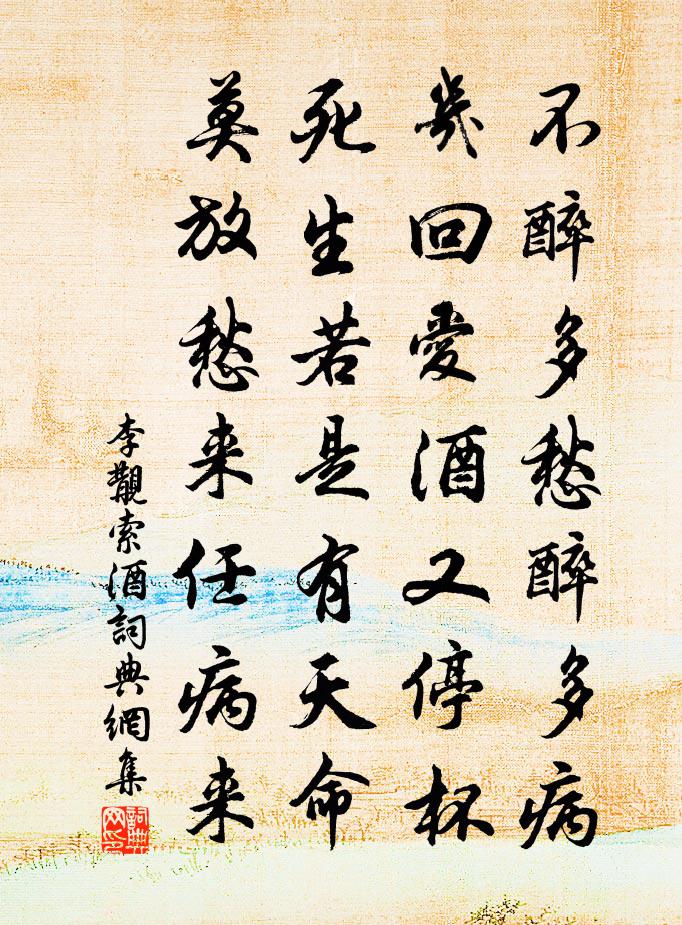 不醉多愁醉多病
幾回愛酒又停杯
死生若是有天命
莫放愁来任病来
李覯索酒詞典網集
詞典网印